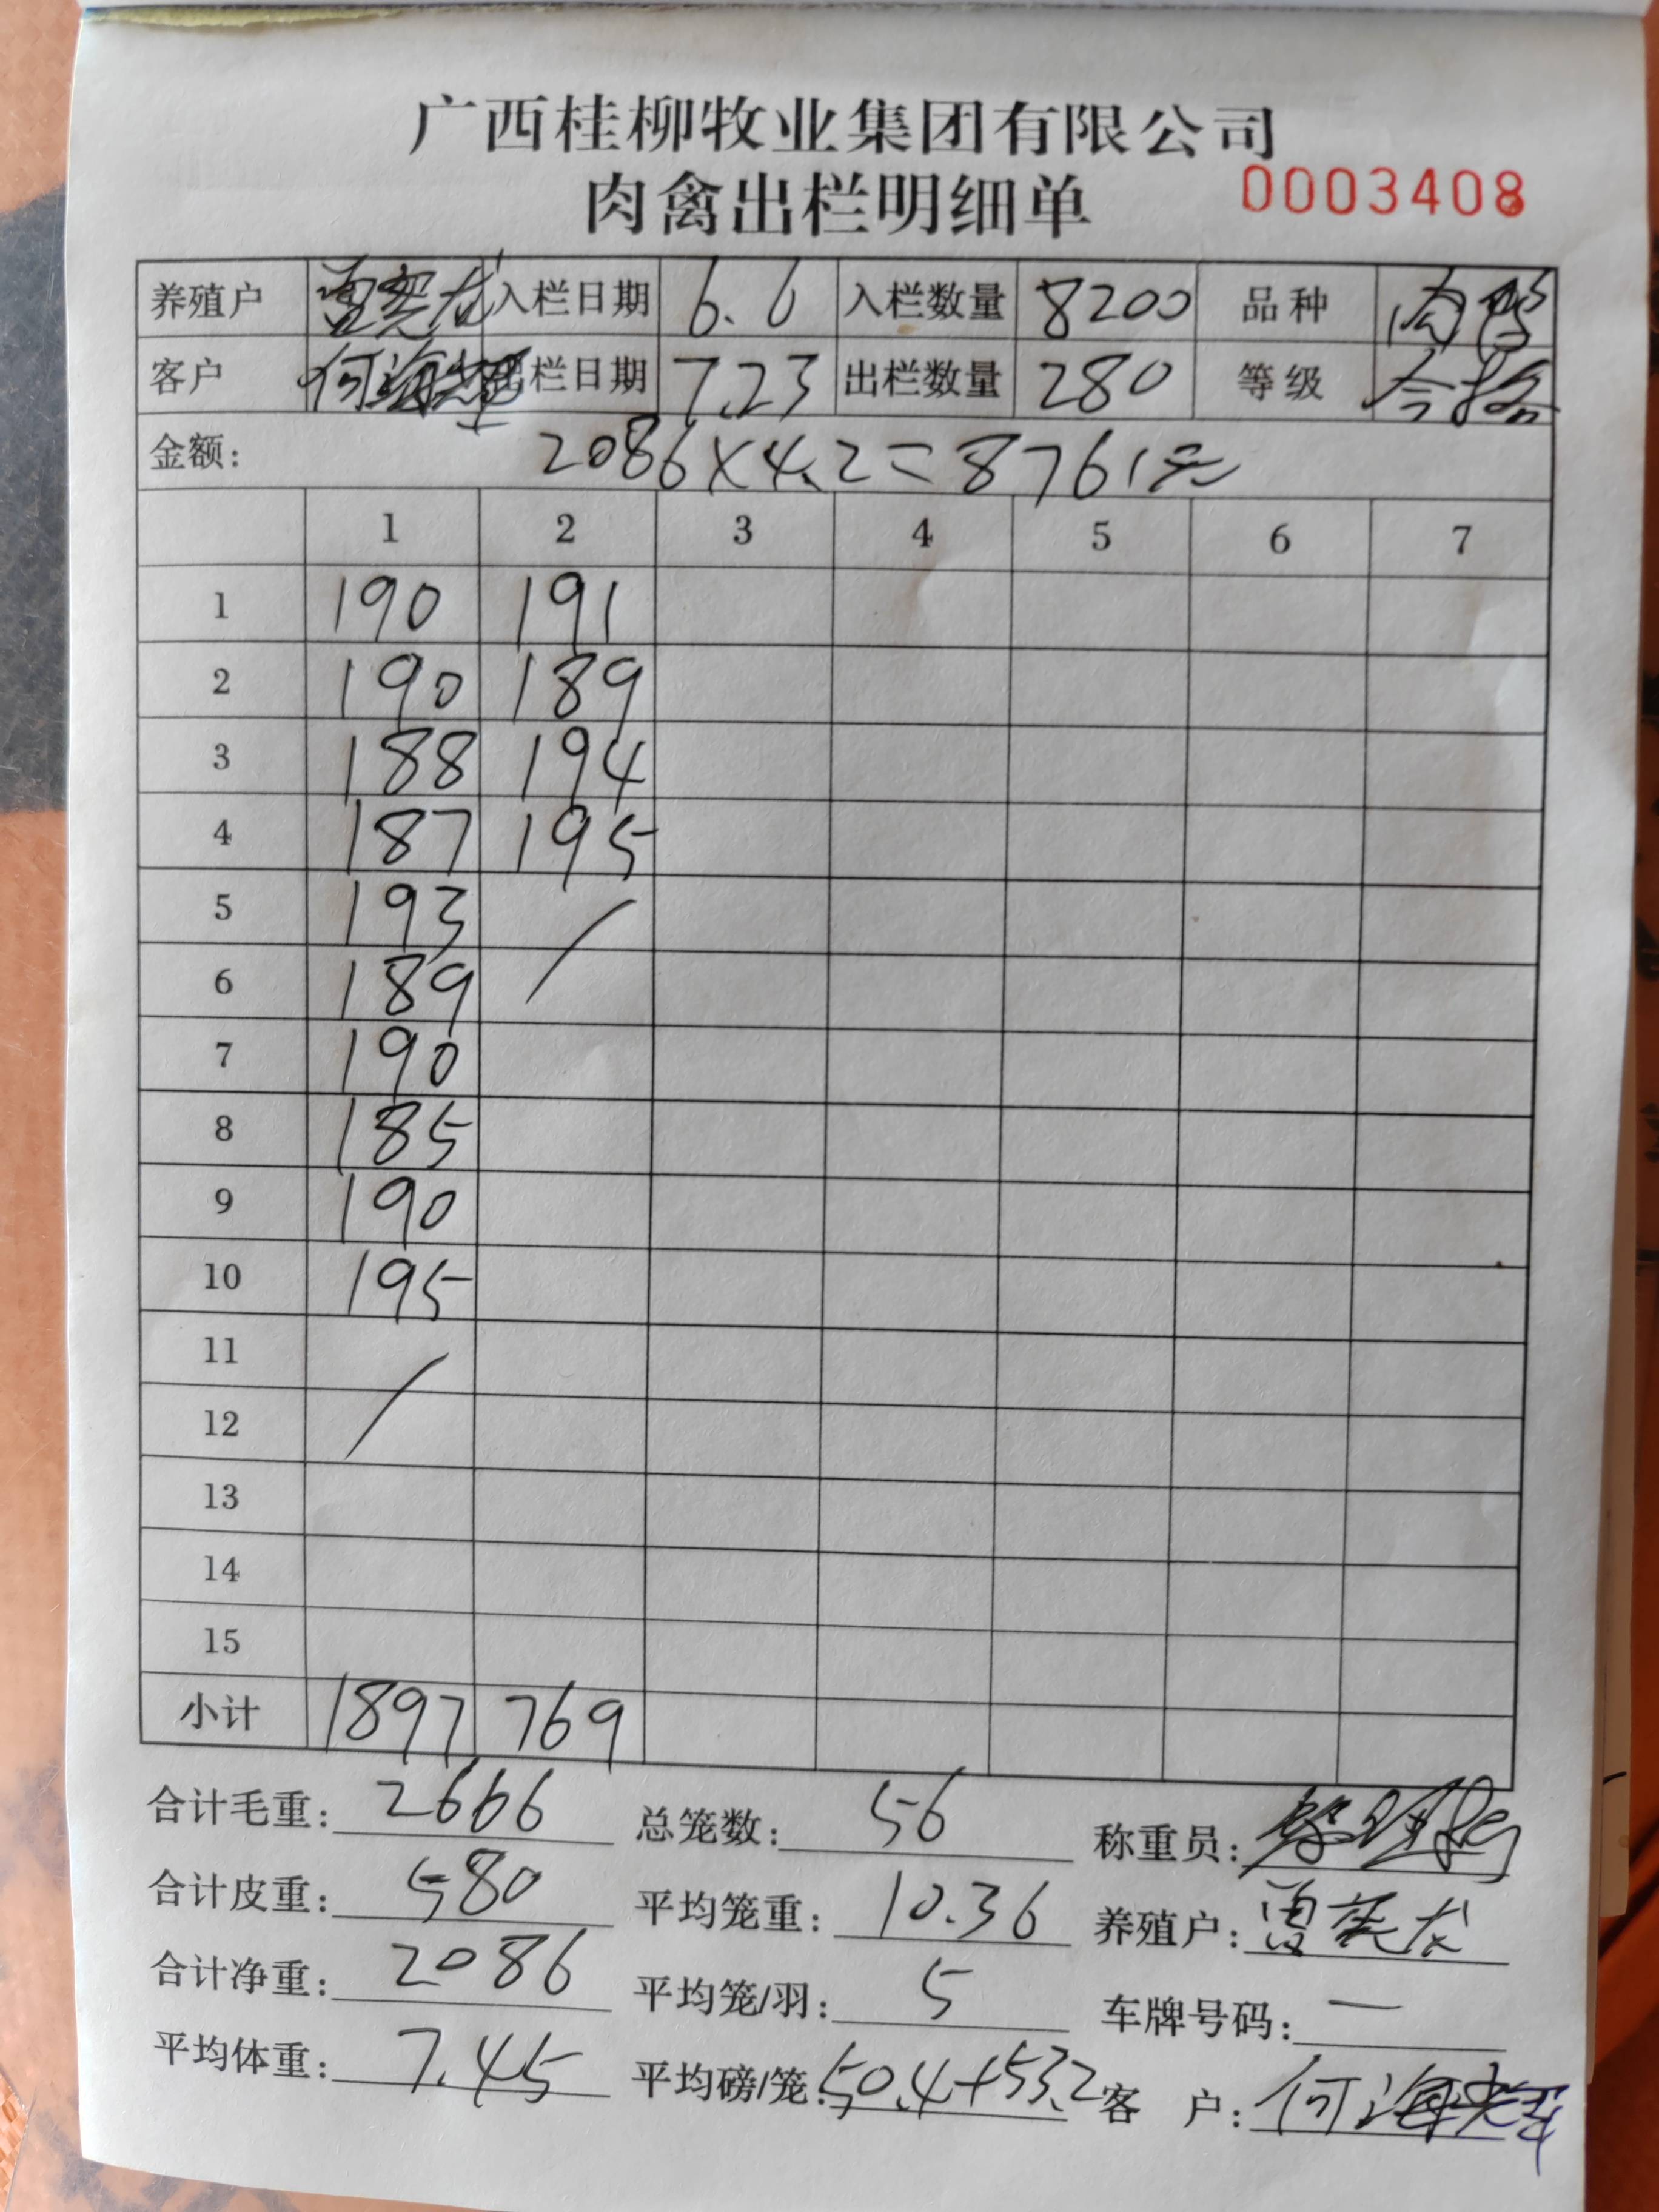 广西桂柳牧业集团有限公司
肉禽出栏明细单 0003408
养殖户 入栏日期 6.6 入栏数量 8200 品种 肉鸭
客户 何海 出栏日期 7.23 出栏数量 280 等级 合格
金额: 2086×4.2=8761元
1 2 3 4 5 6 7
1 190 191
2 190 189
3 188 194
4 187 195
5 193
6 189
7 190
8 185
9 190
10 195
11
12
13
14
15
小计 1897 769
合计毛重: 2666 总笼数: 56 称重员:
合计皮重: 580 平均笼重: 10.36 养殖户:
合计净重: 2086 平均笼/羽: 5 车牌号码: 一
平均体重: 7.45 平均磅/笼: 50.4+53.2 客 户: 何海